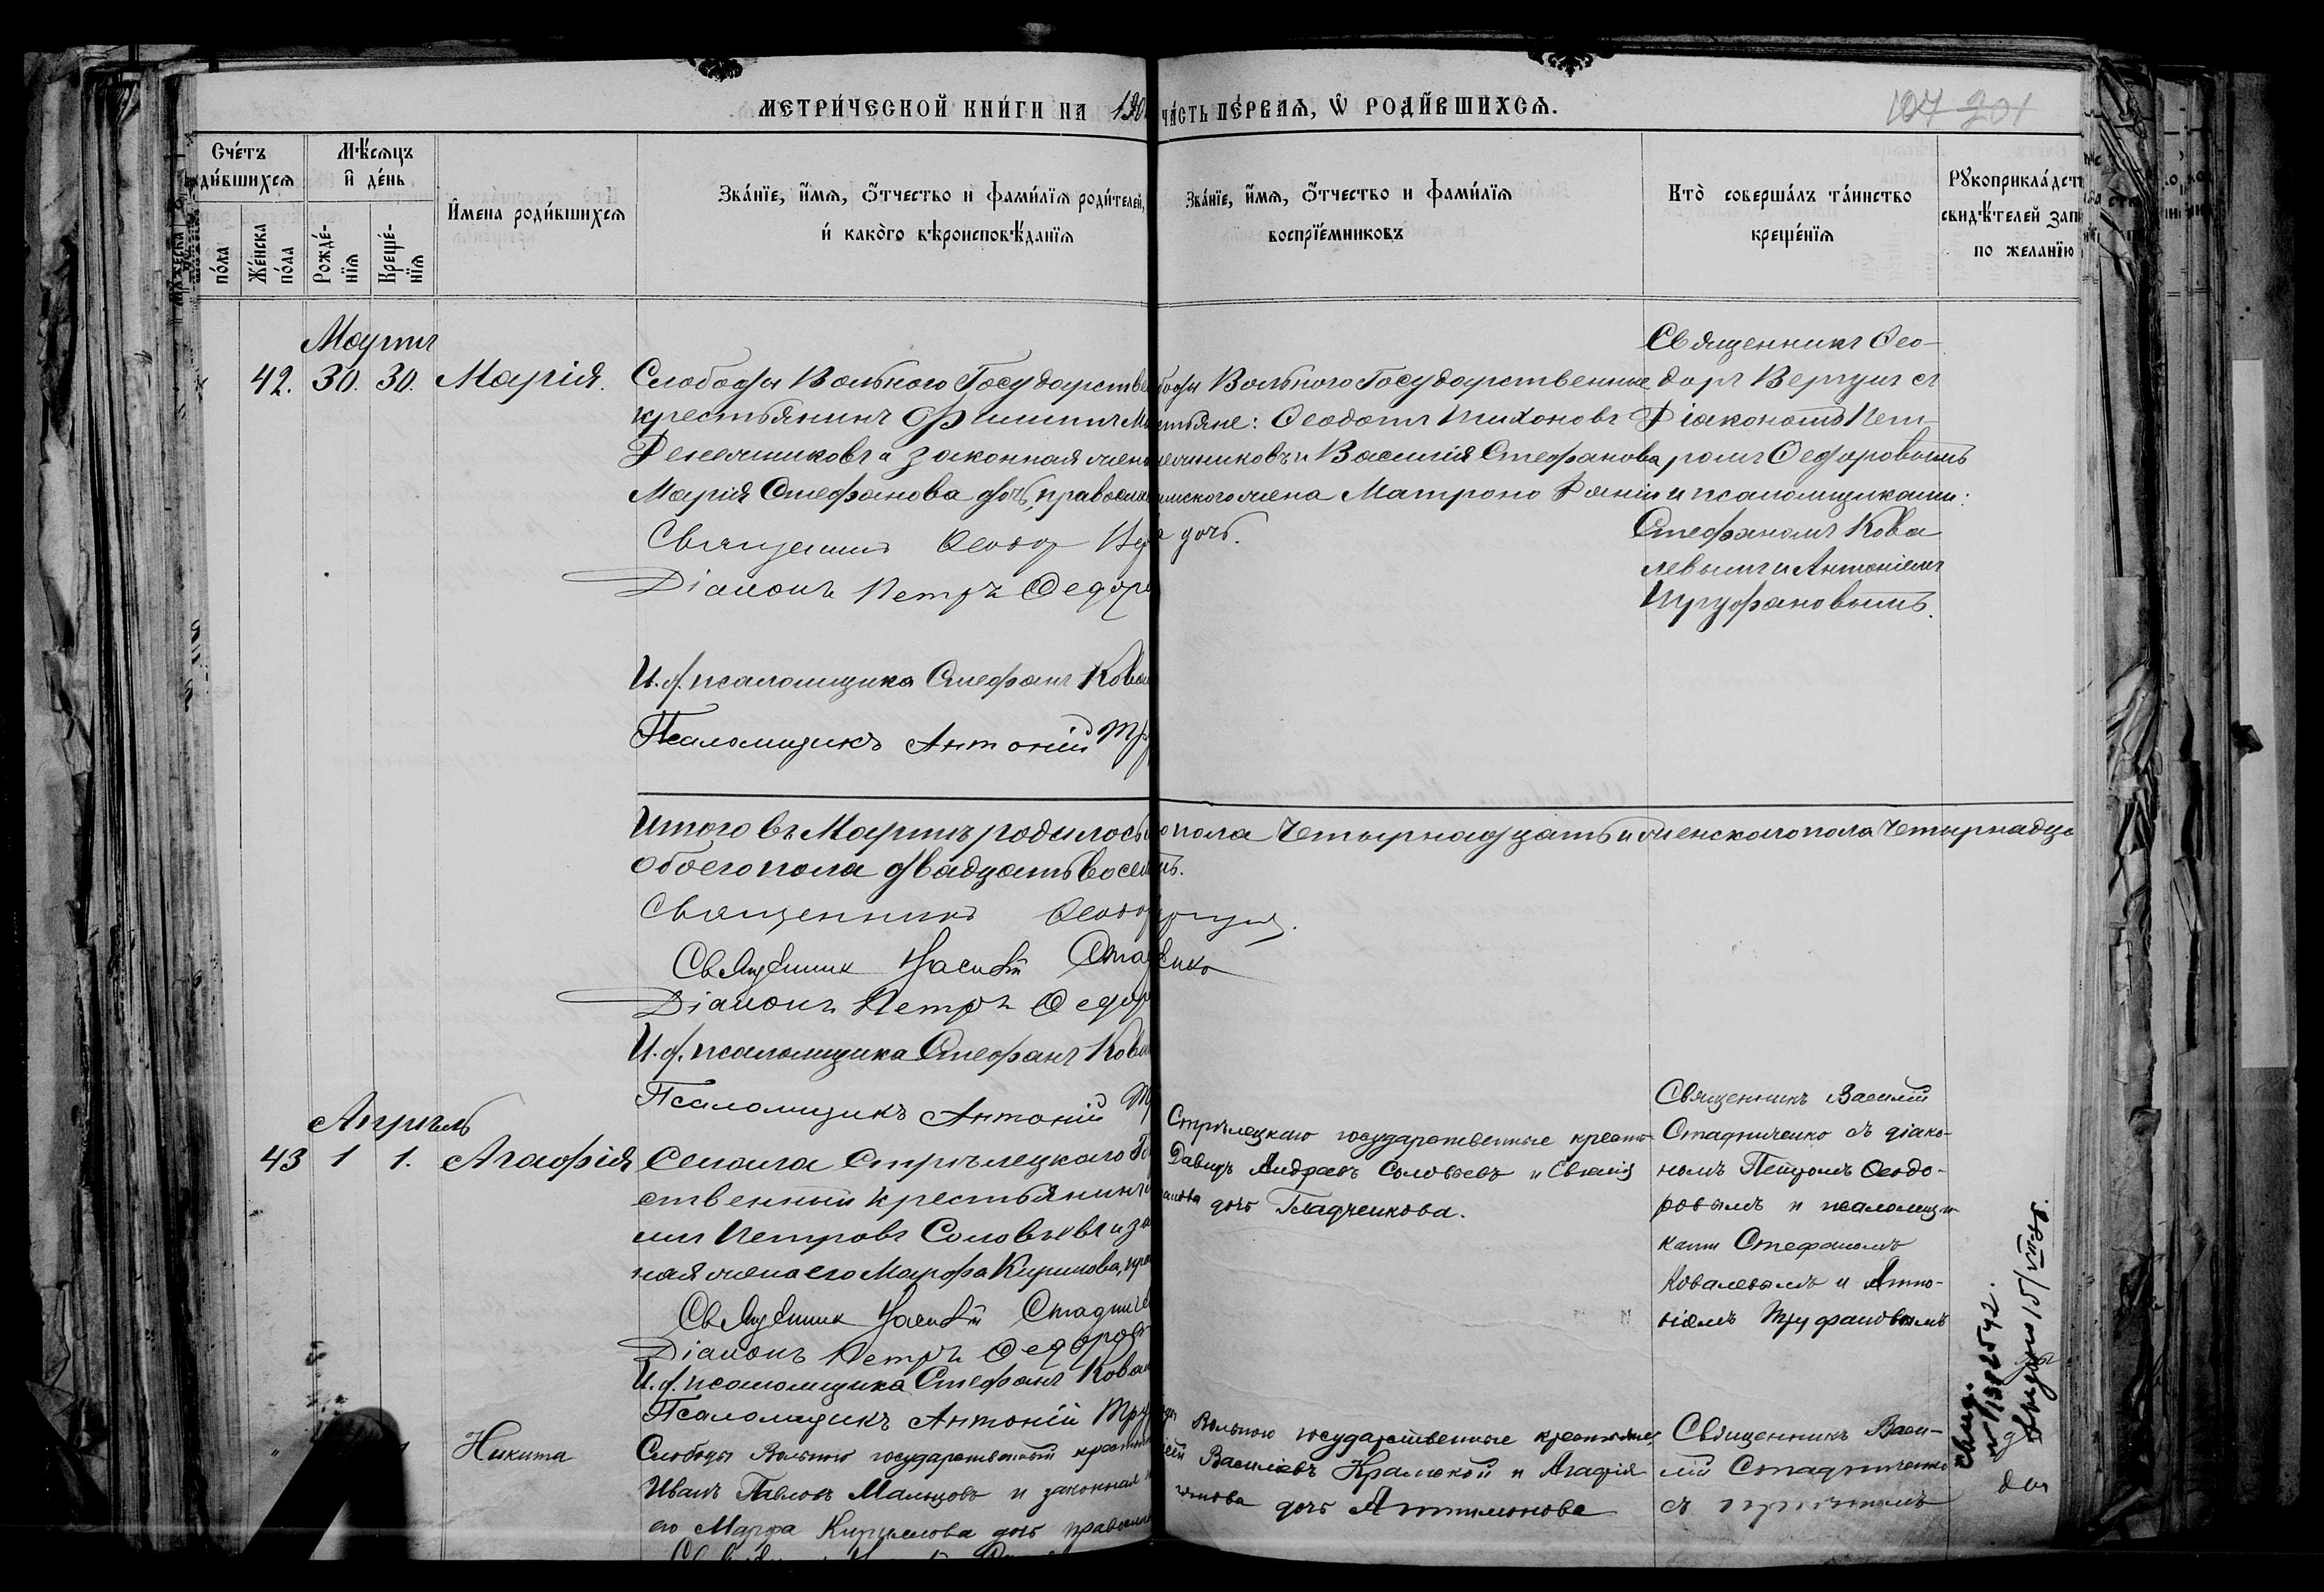 МЕТРИ́ЧЕСКОЙ КНИ́ГИ НА
ЧА́СТЬ ПЕ́РВАЯ, Ѡ РОДИ́ВШИХСЯ.
201
Сче́тъ
ди́вшихся
Мѣ́сяцъ
и де́нь
по́ла
Же́нска
по́ла
Рожде́-
нїя
Креще́-
нїя
И҆мена роди́вшихся
Зва́нїе, и҆́мя, о҆́тчество и фами́лїя роди́телей,
и́ како́го вѣроисповѣ́данїя
Зва́нїе, и҆́мя, о҆́тчество и фами́лїя
воспрїе́мниковъ
Кто̀ соверша́лъ та́инство
креще́нїя
Рꙋкоприкла́дст
свидѣ́телей запи
по желанїю
Мартъ
42. 30. 30. Марія.
Слободы Вольного Государстве
крестьянинъ Филиппъ
законная жен
Марія Стефанова дочь, православ
Священникъ Ѳеодор Вер
Діаконъ Петръ Ѳедоро
И. д. псаломщика Стефанъ Ковал
Псаломщикъ Антоній Тр
боды Вольного Государственные
стьяне: Ѳеодотъ Тихоновъ
и Василія Стефанова
жена Матрона
дочь.
Священникъ Ѳео-
доръ Вергунъ съ
Діакономъ Пет-
ромъ Ѳедоровымъ
и псаломщиками:
Стефаномъ Кова
левымъ и Антоніемъ
Труфановымъ.
Итого въ Мартѣ родилось
о пола четырнадцать и женского пола четырнадца
Обоего пола двадцать восем
ть.
Священникъ Ѳеодор
Священник Василій Стад
енко
Діаконъ Петръ Ѳедор
И. д. псаломщика Стефанъ Ковал
Псаломщикъ Антоній Т
Апрѣль
43 1 1. Агафія
Села Стрѣлецкаго Го
ственный крестьянинъ
Петровъ Соловьевъ и за
ная жена его Марфа Кирилова, пра
Священник Василій Стадниче
Діаконъ Петръ Ѳедоров
И. д. псаломщика Стефанъ Ковал
Псаломщикъ Антоній Тру
Стрѣлецкаго государственные кресть
Давидъ Андреевъ Соловьевъ и Евгенія
анова дочь Гладченкова.
Священникъ Василій
Стадниченко съ діако-
номъ Петромъ Ѳеодо-
ровымъ и псаломщи-
ками Стефаномъ
Ковалевымъ и Анто-
ніемъ Труфановымъ
Никита
Слободы Вольного государственный крестьян
Иванъ Павловъ Мальцовъ и законная
его Марфа Кирилова дочь правосла
Вольного государственные крестьяне,
Василіевъ и Агафія
дочь Антимонова
Священникъ Васи-
лій Стадниченко
съ причтомъ